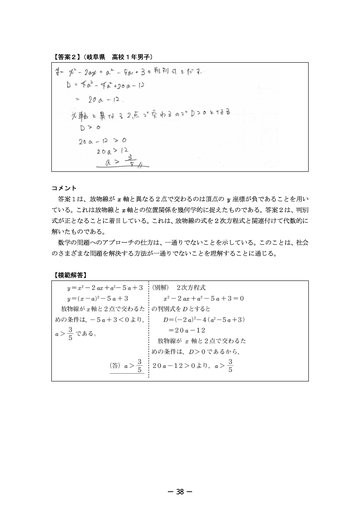 【答案2】(岐阜県 高校1年男子)
y = x² - 2ax + a² - 5a + 3 の判別式をDとする
D = 4a² - 4a² + 20a - 12
= 20a - 12.
x軸と異なる2点で交わるのでD>0となる
D > 0
20a - 12 > 0
20a > 12
a > 3/5
コメント
答案1は、放物線が x 軸と異なる2点で交わるのは頂点の y 座標が負であることを用い
ている。これは放物線と x 軸との位置関係を幾何学的に捉えたものである。答案2は、判別
式が正となることに着目している。これは、放物線の式を2次方程式と関連付けて代数的に
解いたものである。
数学の問題へのアプローチの仕方は、一通りでないことを示している。このことは、社会
のさまざまな問題を解決する方法が一通りでないことを理解することに通じる。
【模範解答】
y=x²-2ax+a²-5a+3
y=(x-a)²-5a+3
放物線が x 軸と2点で交わるた
めの条件は、-5a+3<0より、
a>3/5 である。
(答) a>3/5
(別解) 2次方程式
x²-2ax+a²-5a+3=0
の判別式をDとすると
D=(-2a)²-4(a²-5a+3)
=20a-12
放物線が x 軸と2点で交わるた
めの条件は、D>0であるから、
20a-12>0より、a>3/5
- 38 -